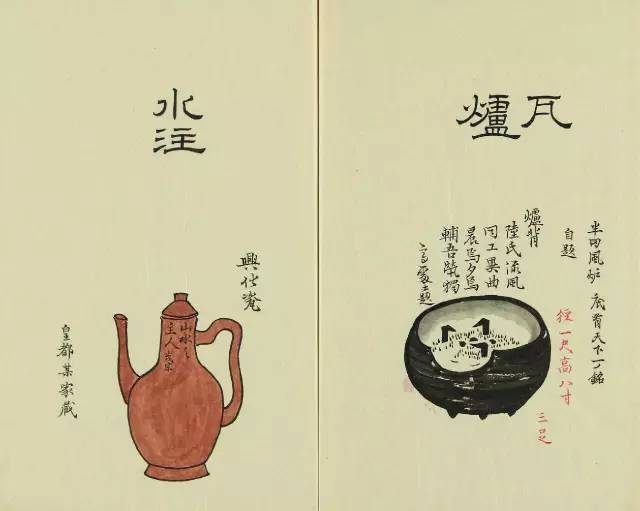 瓦爐
半田風炉 底有天下一銘
自題
径一尺高八寸
三足
爐背
陸氏流風
同工異曲
晨焉夕焉
輔吾煢獨
主題
水注
興
山水
主人
皇都某家蔵